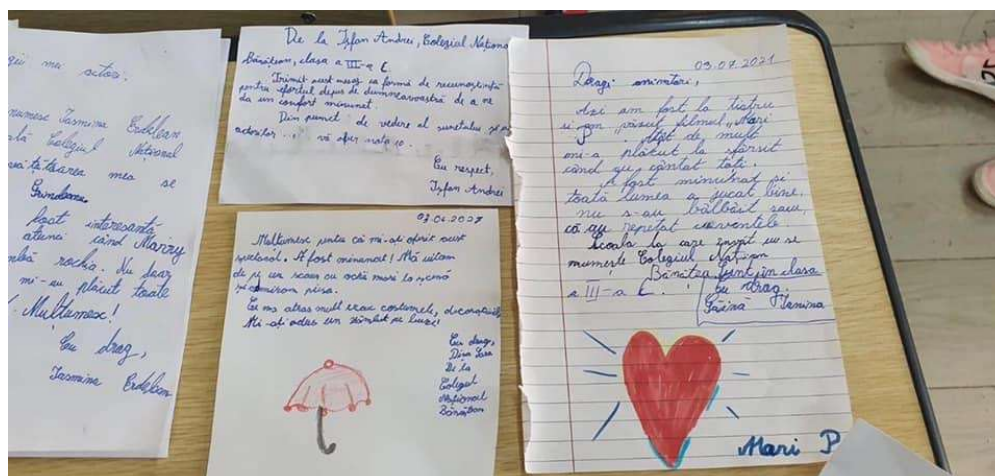 mei actori.
Jasmina Erdelean
Colegiul Național
mea se
fost interesantă
atunci când Marry
rochia. Nu doar
mi-au plăcut toate
Mulțumesc!
Cu drag,
Jasmina Erdelean
De la Ișfan Andrei, Colegiul Național
Bănățean, clasa a III-a C
Trimit acest mesaj ca formă de recunoștință
pentru efortul depus de dumneavoastră de a ne
da un confort minunat.
Din punct de vedere al sunetului și al
actorilor ... vă ofer nota 10.
Cu respect,
Ișfan Andrei
Mulțumesc pentru că mi-ați oferit acest
spectacol. A fost minunat! Mă uitam
de pe un scaun cu ochii mari la scenă
și admiram piesa.
Cu drag,
De la
Colegiul
Național
Bănățean
03.07.2021
Dragi animatori,
Azi am fost la tiatru
și am văzut filmul "Mari
P". Atât de mult
mi-a plăcut la sfârșit
când au cântat toți.
A fost minunat și
toată lumea a jucat bine,
nu s-au bâlbâit sau,
că au repetat cuventele.
Școala la care învăț eu se
numește Colegiul Național
Bănățean sunt în clasa
a III-a C.
Cu drag.
Găină Iasmina
Mari P